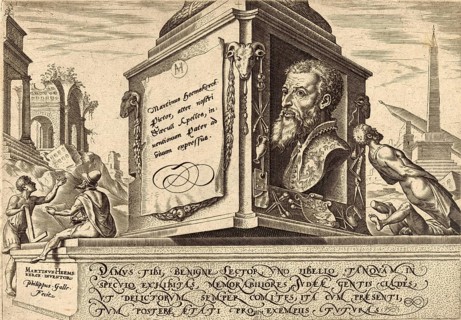 M
Martinus Heemskerck
Pictor, alter nostri
Sæculi Apelles, in,
uentionum Pater ad
viuum expressus.
MARTINVS HEEMS
KERCK INVENTOR
Philippus Galle
Fecit
DAMVS TIBI, BENIGNE LECTOR, VNO LIBELLO, TANQVAM IN
SPECVLO EXHIBITAS, MEMORABILIORES IVDEÆ GENTIS CLADES,
VT DELICTORVM SEMPER COMITES, ITA CVM PRÆSENTI,
TVM POSTERÆ ÆTATI PRO EXEMPLIS FVTVRAS.